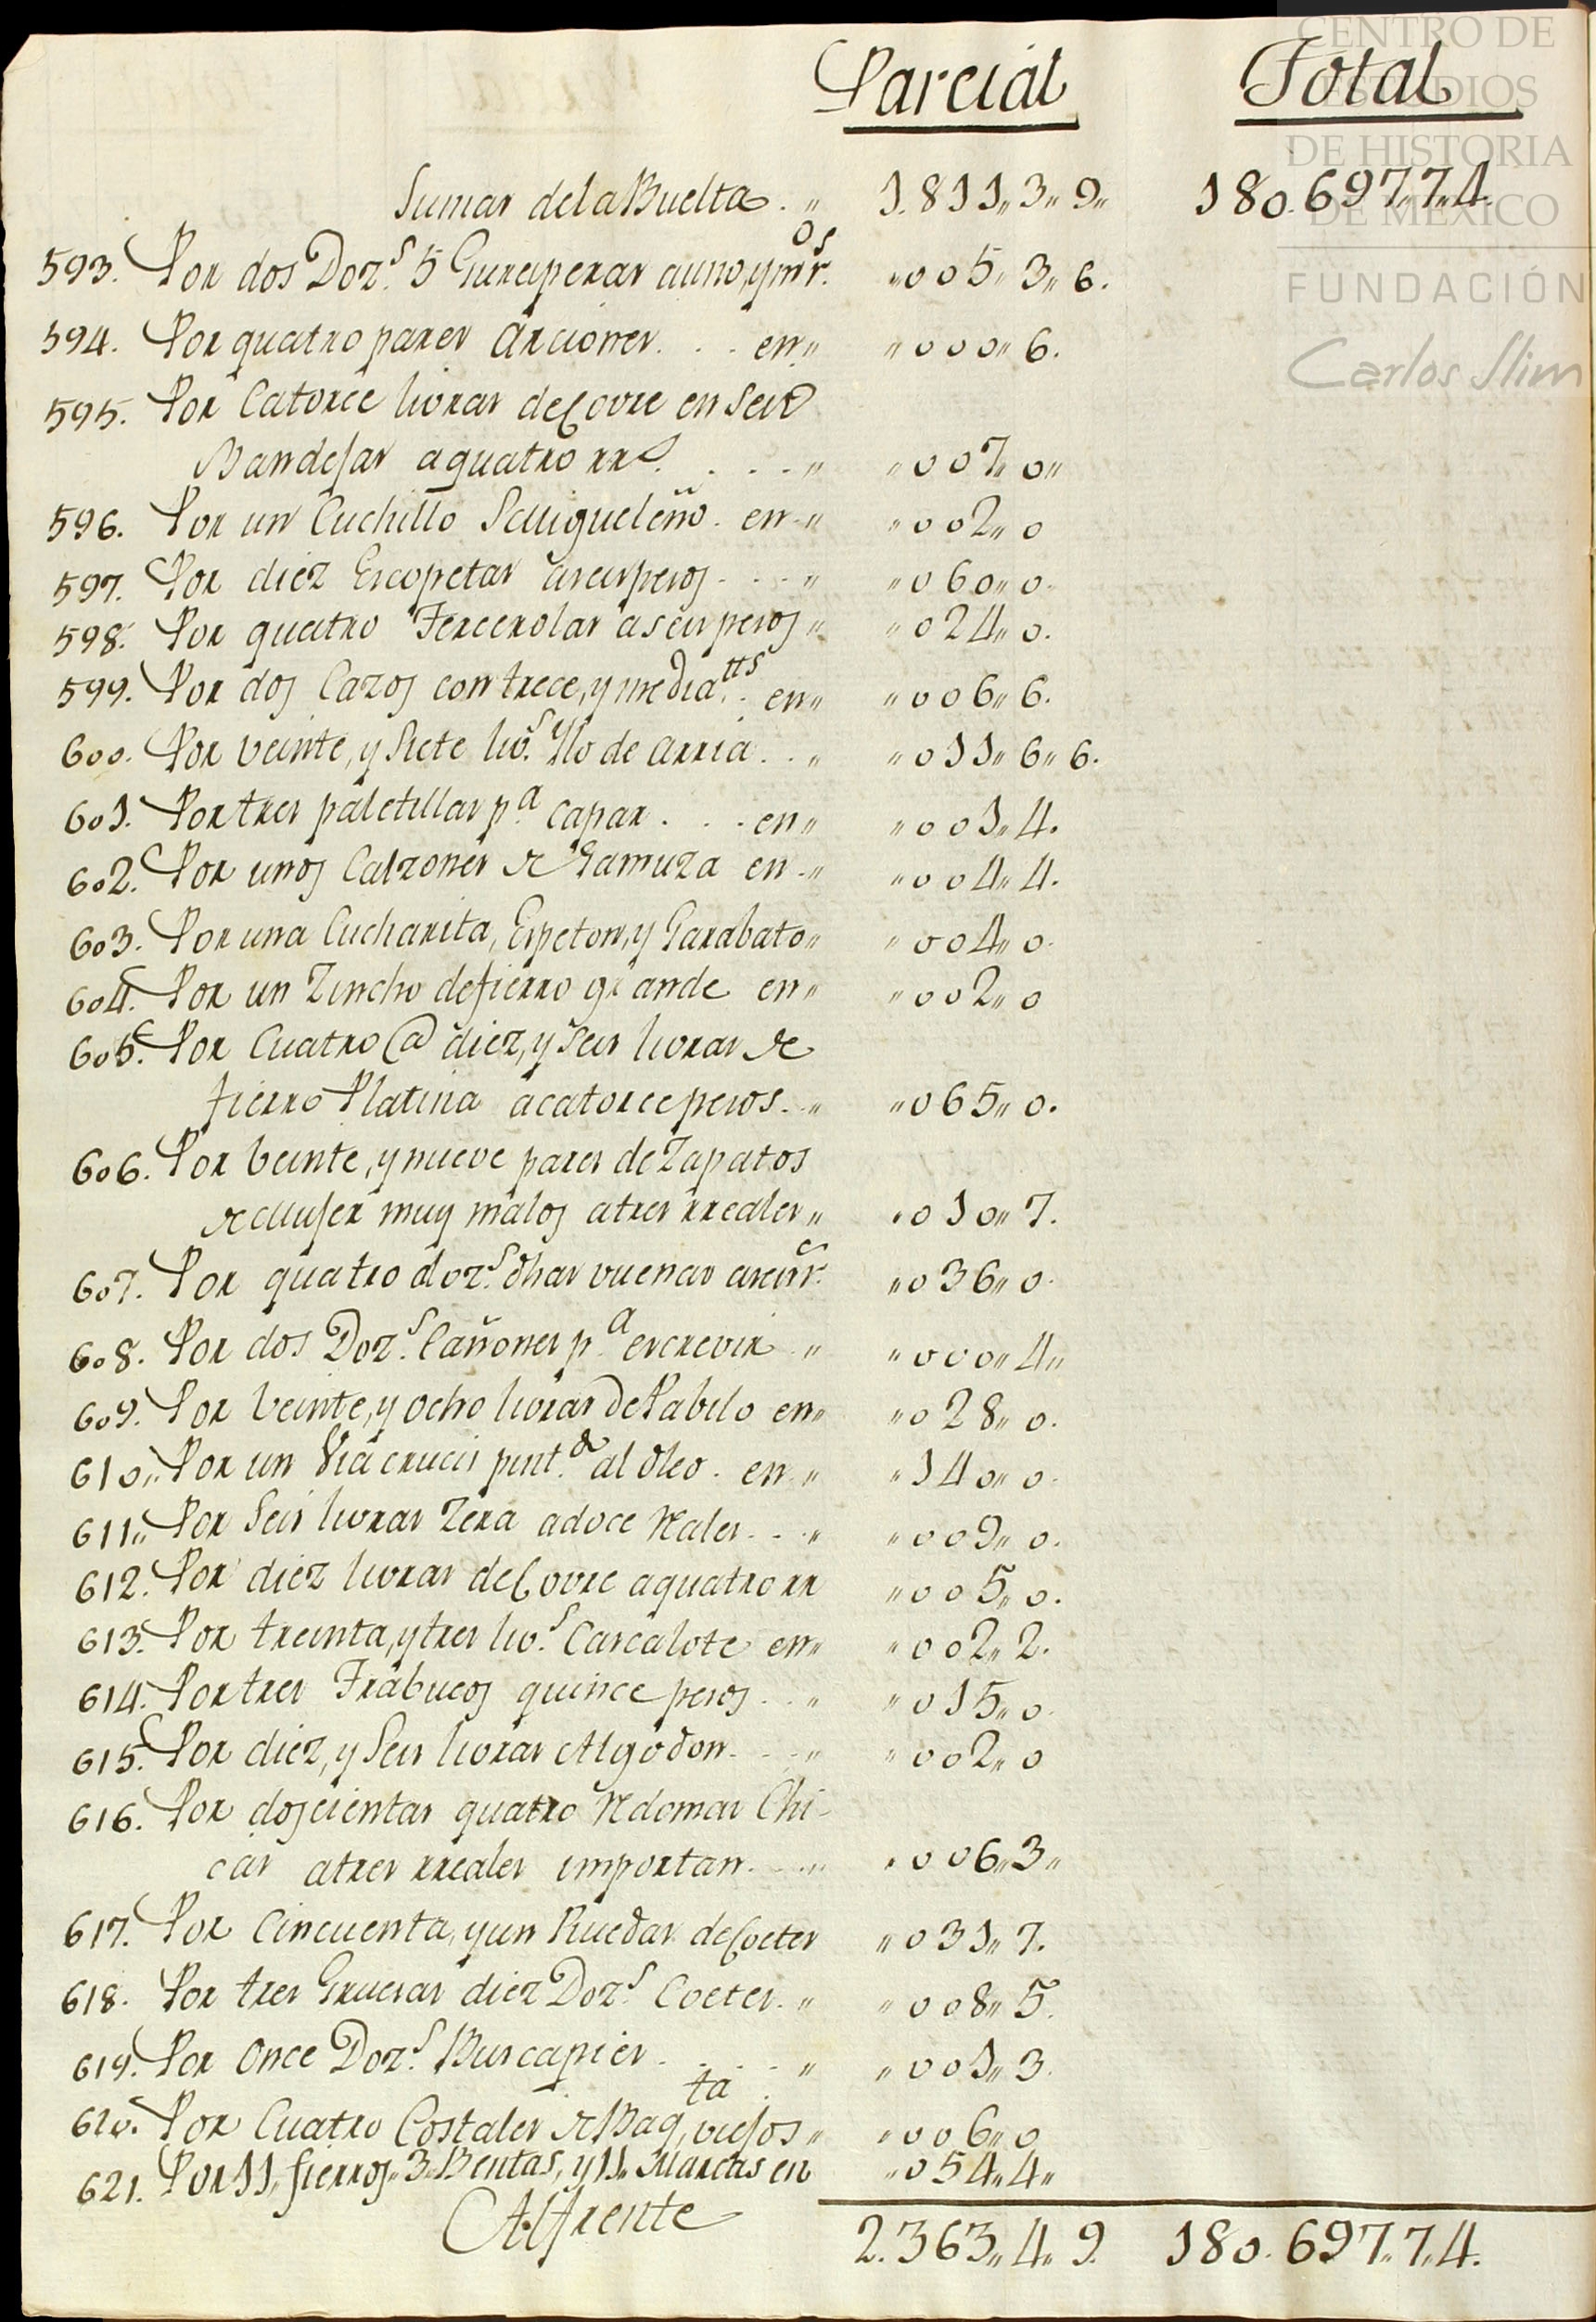 Parcial Total
CENTRO DE
ESTUDIOS
DE HISTORIA
DE MÉXICO
FUNDACIÓN
Carlos Slim
Sumas de la Buelta. „ 1.811„3„9„ 180.697„7„4.
593. Por dos Doz.s 5 Guruperas a uno, y m.os rs. „005„3„6.
594. Por quatro pares Arciones. . . en„ „000„6.
595. Por Catorce livras de Covre en Seis
Bandejas a quatro rrs. . . . „ „007„0„
596. Por un Cuchillo SMigueleño. en„ „002„0
597. Por diez Escopetas a seis pesos . . . „ „060„0.
598. Por quatro Tercerolas a seis pesos „ „024„0.
599. Por dos Cazos con trece, y media tts. en„ „006„6.
600. Por veinte, y Siete liv.s Ylo de arria . . „ „011„6„6.
601. Por tres paletillas p.a capar . . . en„ „001„4.
602. Por unos Calzones de Gamuza en„ „004„4.
603. Por una Cucharita, Espeton, y Garabato„ „004„0.
604. Por un Zincho de fierro grande en„ „002„0
605. Por Cuatro @ diez, y Seis livras de
fierro Platina a catorce pesos. „ „065„0.
606. Por Veinte, y nueve pares de Zapatos
de Muger muy malos a tres rreales„ „010„7.
607. Por quatro doz.s dhas vuenas a seis rs. „036„0.
608. Por dos Doz.s Cañones p.a escrevir „ „000„4„
609. Por Veinte, y ocho livras de Pabilo en„ „028„0.
610„ Por un Viacrucis pint.do al óleo. en„ „140„0.
611„ Por Seis livras Zera a doce Rales . . „ „009„0.
612. Por diez livras de Covre a quatro rr „005„0.
613. Por treinta, y tres liv.s Cascalote en„ „002„2.
614. Por tres Trabucos quince pesos . . „ „015„0.
615. Por diez, y Seis livras Algodon. . . „ „002„0
616. Por doscientas quatro Redomas Chi-
cas a tres rreales importan. . . „ „006„3„
617. Por Cincuenta, y un Ruedas de Coetes „031„7.
618. Por tres Gruesas diez Doz.s Coetes. „ „008„5.
619. Por Once Doz.s Buscapies . . . . „ „001„3.
620. Por Cuatro Costales de Baq.ta viejos„ „006„0
621. Por 11„ fierros„ 3„ Bentas, y 11„ Marcas en „054„4„
Al frente 2.363„4„9. 180.697„7„4.